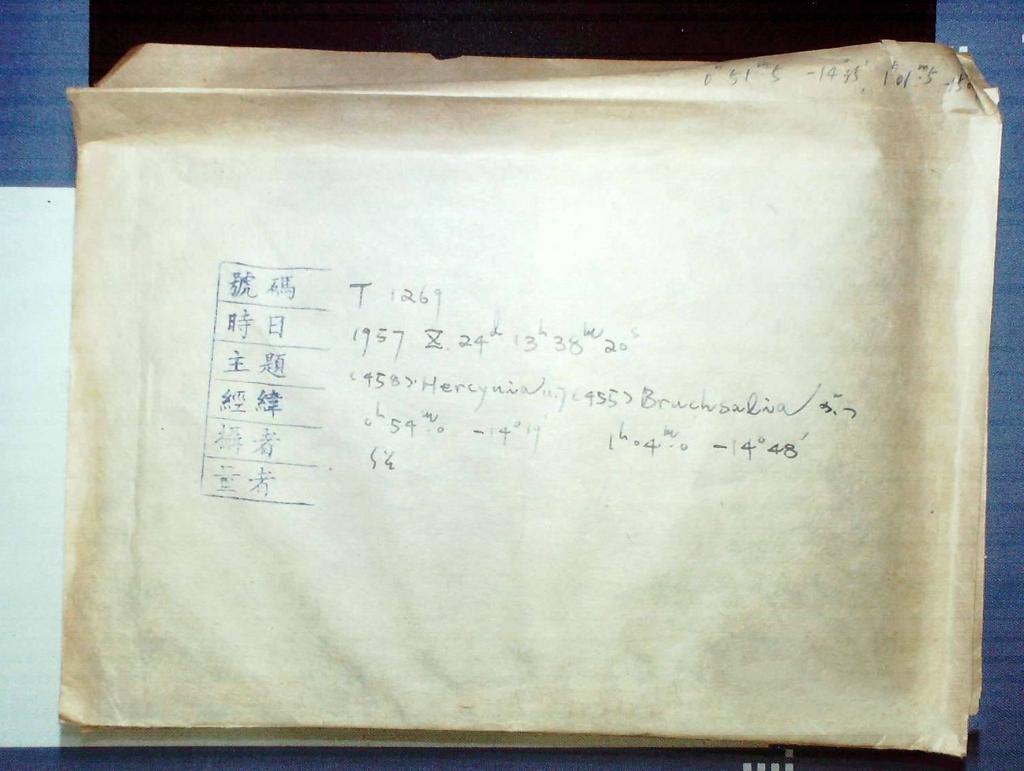 0ʰ 51ᵐ.5 -14°35', 1ʰ 01ᵐ.5
號碼 T 1269
時日 1957 X 24ᵈ 13ʰ 38ᵐ 20ˢ
主題 (458) Hercynia (455) Bruchsalia
經緯 0ʰ 54ᵐ.0 -14°19' 1ʰ 04ᵐ.0 -14°48'
攝者
量者